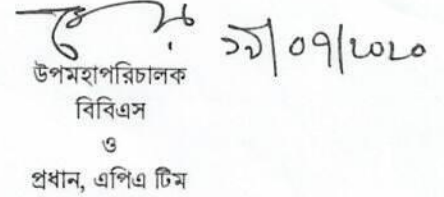 ০৭/২০২০
উপমহাপরিচালক
বিবিএস
ও
প্রধান, এপিএ টিম